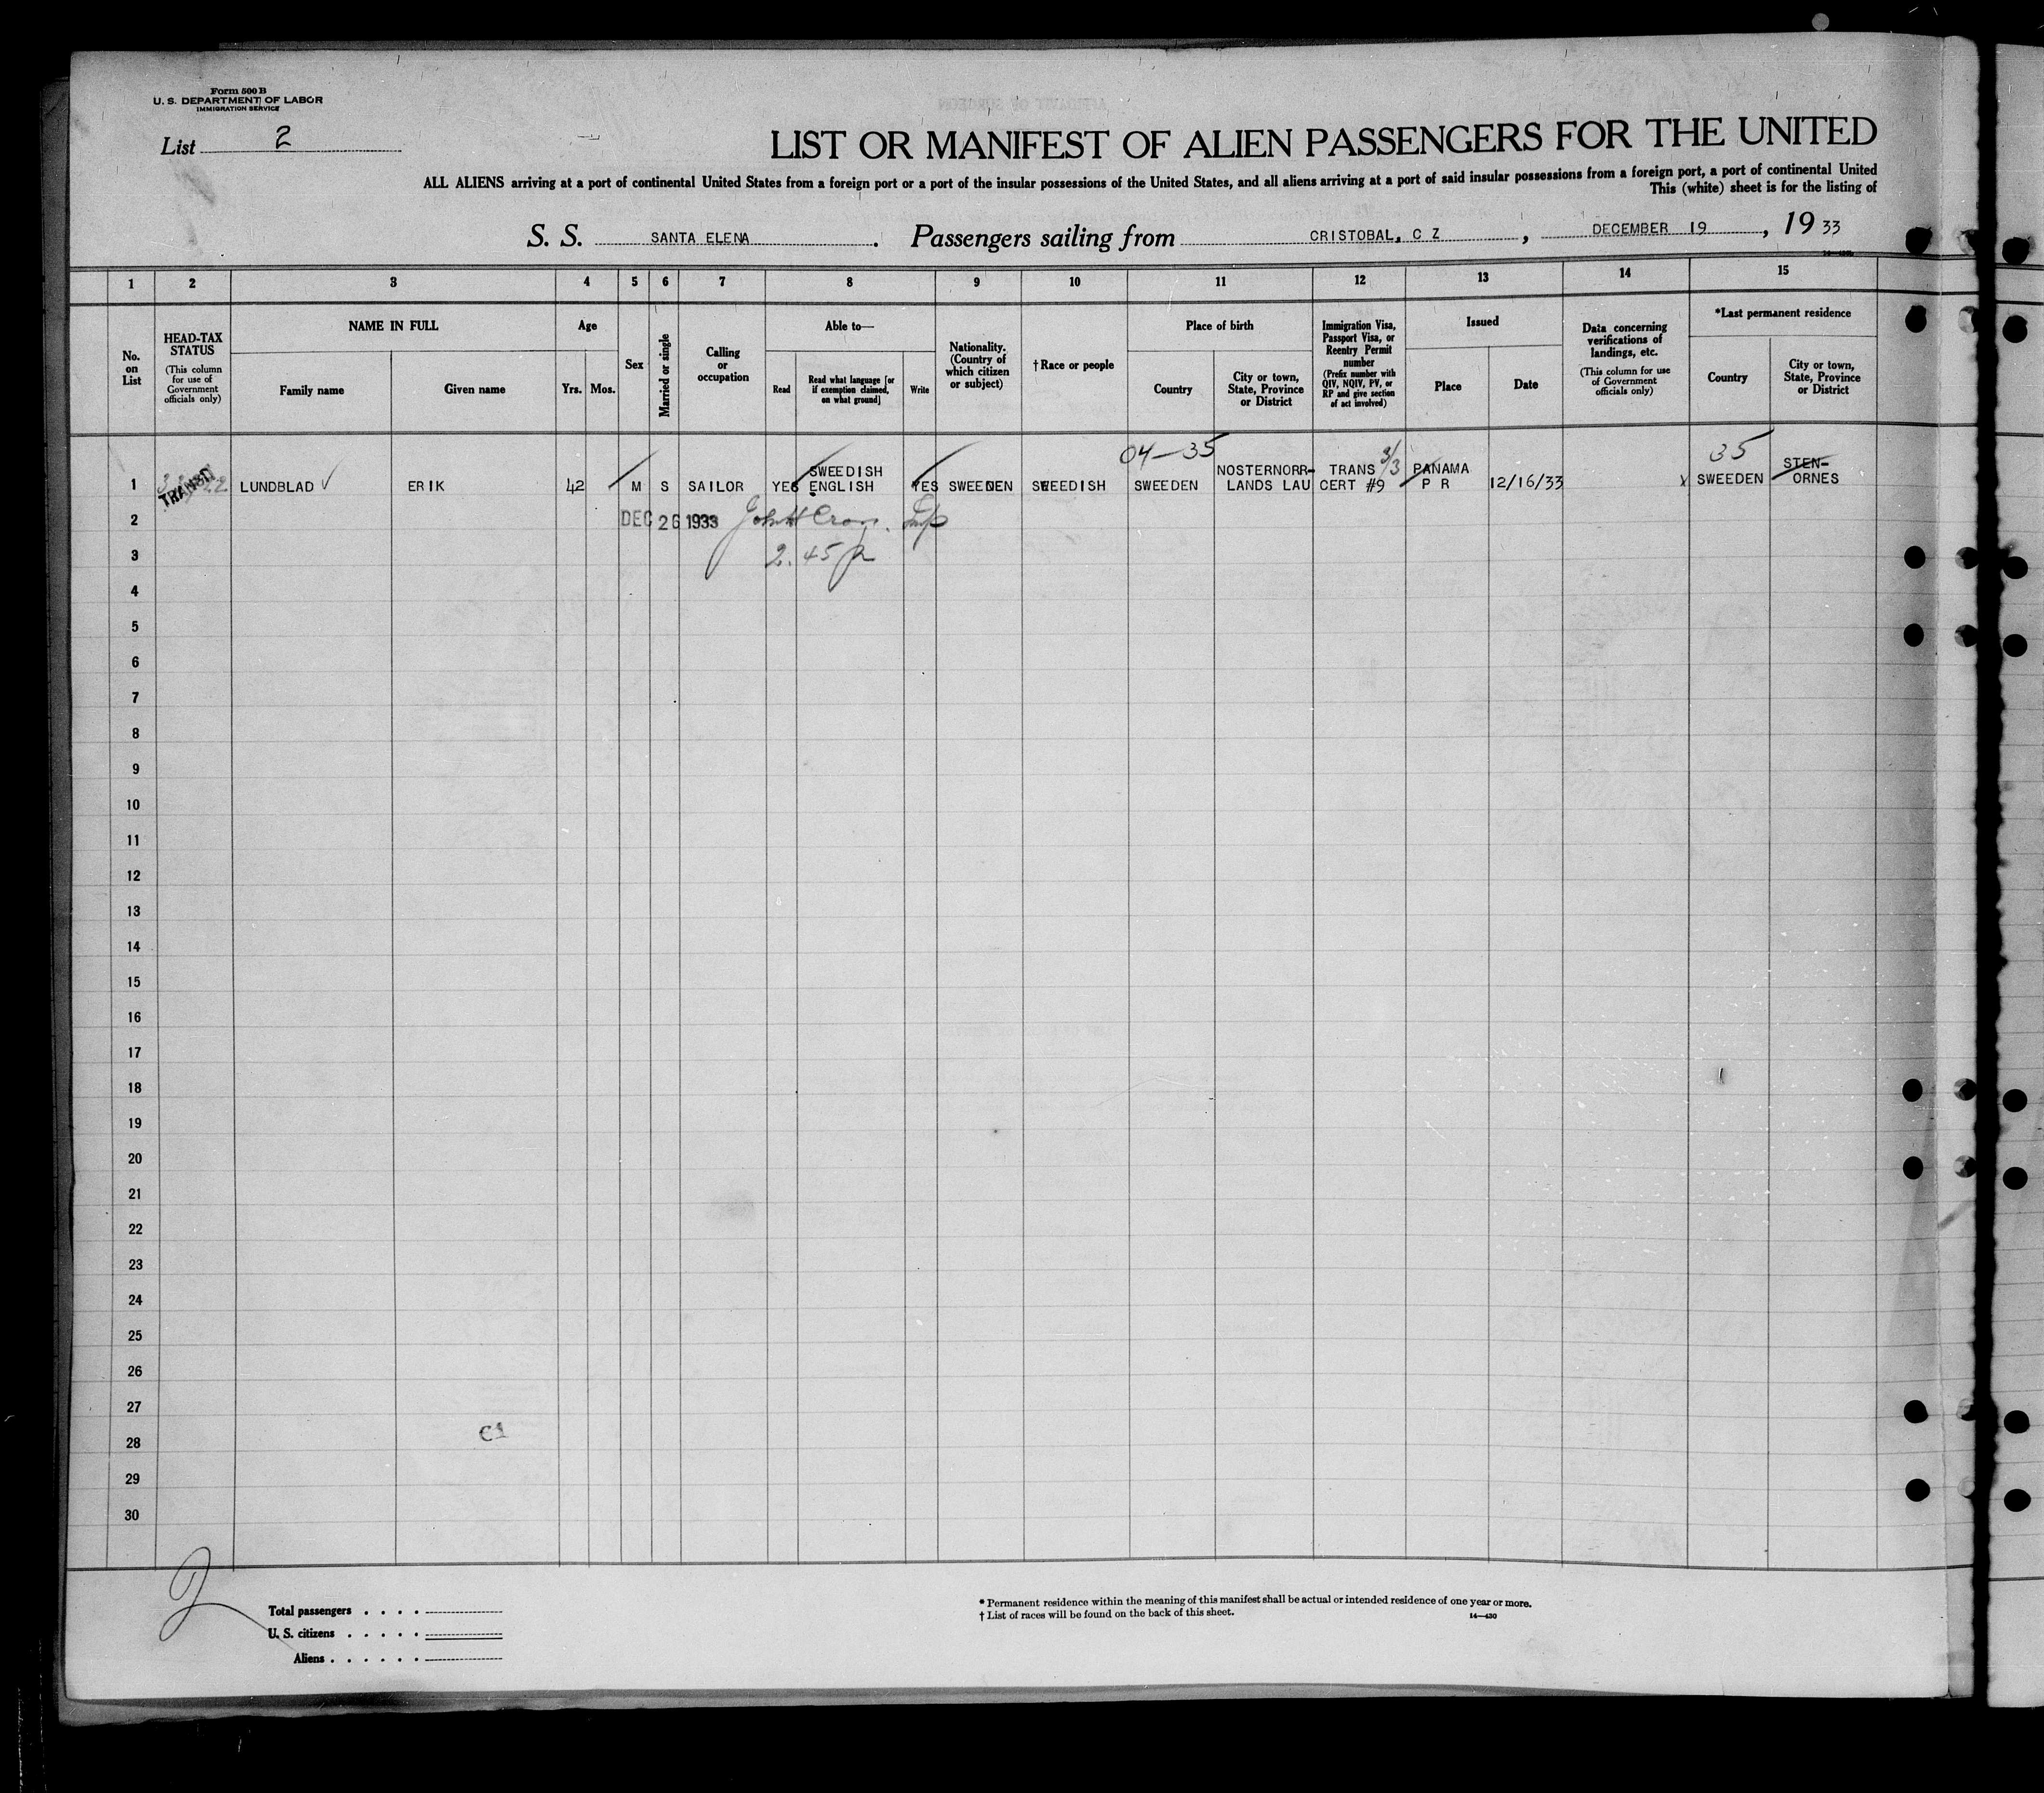 Form 500 B
U. S. DEPARTMENT OF LABOR
IMMIGRATION SERVICE
List 2
LIST OR MANIFEST OF ALIEN PASSENGERS FOR THE UNITED
ALL ALIENS arriving at a port of continental United States from a foreign port or a port of the insular possessions of the United States, and all aliens arriving at a port of said insular possessions from a foreign port, a port of continental United
This (white) sheet is for the listing of
S. S. SANTA ELENA . Passengers sailing from CRISTOBAL, C Z , DECEMBER 19 , 19 33
1 2 3 4 5 6 7 8 9 10 11 12 13 14 15
No. on List
HEAD-TAX STATUS
(This column for use of Government officials only)
NAME IN FULL
Family name
Given name
Age
Yrs. Mos.
Sex
Married or single
Calling or occupation
Able to—
Read
Read what language [or if exemption claimed, on what ground]
Write
Nationality. (Country of which citizen or subject)
† Race or people
Place of birth
Country
City or town, State, Province or District
Immigration Visa, Passport Visa, or Reentry Permit number
(Prefix number with QIV, NQIV, PV, or RP and give section of act involved)
Issued
Place
Date
Data concerning verifications of landings, etc.
(This column for use of Government officials only)
*Last permanent residence
Country
City or town, State, Province or District
04—35 3/3 35
SWEEDISH NOSTERNORR- TRANS PANAMA STEN-
1 TRANSIT LUNDBLAD ERIK 42 M S SAILOR YES ENGLISH YES SWEEDEN SWEEDISH SWEEDEN LANDS LAU CERT #9 P R 12/16/33 X SWEEDEN ORNES
2 DEC 26 1933 Insp
3 2.45 p
4
5
6
7
8
9
10
11
12
13
14
15
16
17
18
19
20
21
22
23
24
25
26
27
28
29
30
Total passengers . . . .
U. S. citizens . . . . .
Aliens . . . . . .
* Permanent residence within the meaning of this manifest shall be actual or intended residence of one year or more.
† List of races will be found on the back of this sheet. 14—430